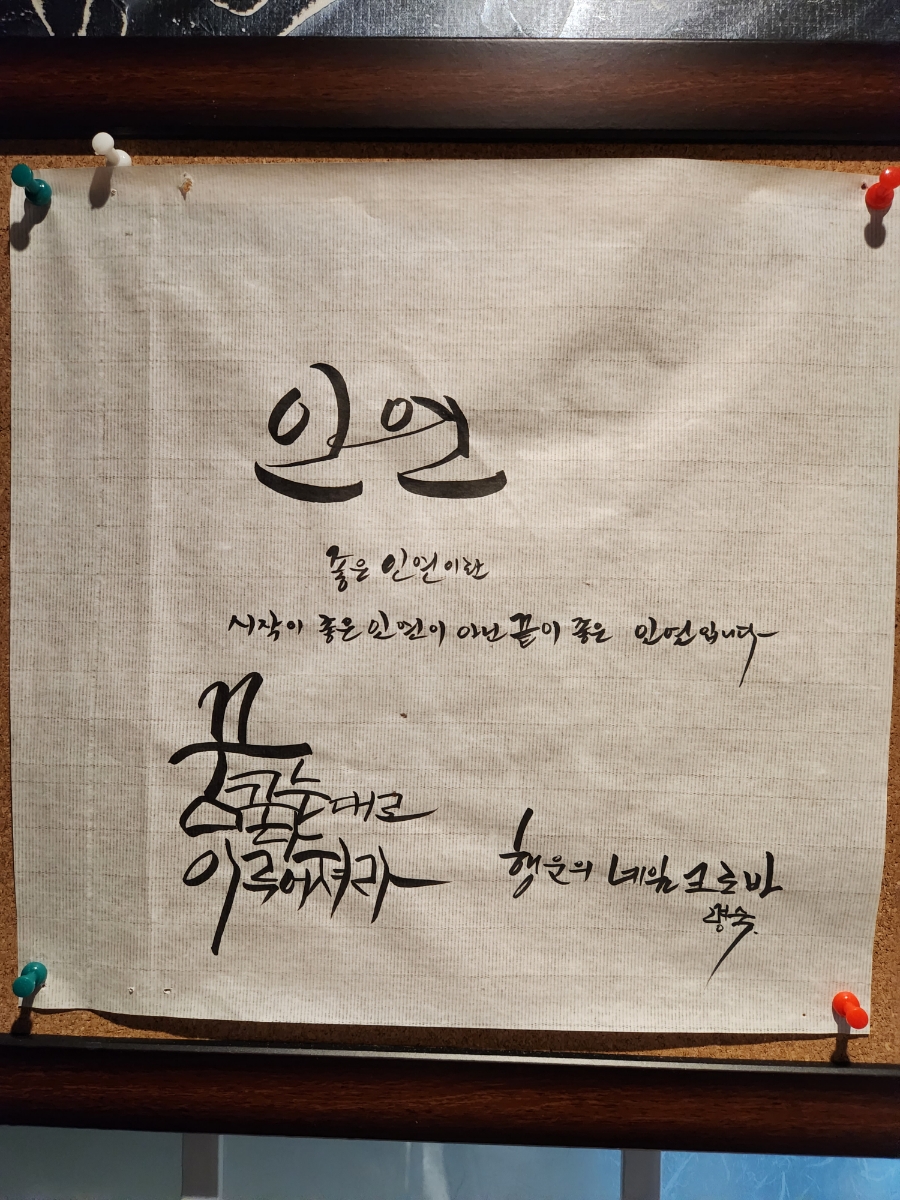 인연
좋은 인연이란
시작이 좋은 인연이 아닌 끝이 좋은 인연입니다
꿈
꿈꾸는대로
이루어져라
행운의 네잎 크로바